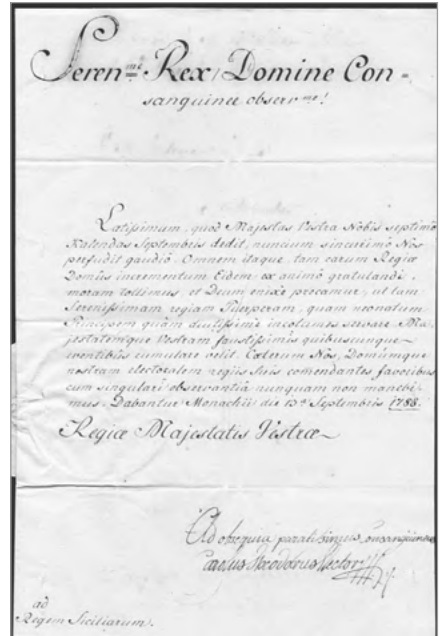 Seren.me Rex, Domine Con=
sanguinee observ.me!
Lætissimum, quod Majestas Vestra Nobis septimo
Kalendas Septembris dedit, nuncium sincerissimo Nos
perfudit gaudio. Omnem itaque tam carum Regiæ
Domûs incrementum Eidem ex animo gratulandi
moram tollimus, et Deum enixe precamur, ut tam
Serenissimam regiam Puerperam, quam neonatum
Principem quàm diutissimè incolumes servare, Ma=
jestatemque Vestram faustissimis quibuscunque
eventibus cumulare velit. Cæterum Nos, Domumque
nostram electoralem regiis Suis comendantes favoribus
cum singulari observantiâ nunquam non manebi=
mus. Dabantur Monachii die 13.a Septembris 1788.
Regiæ Majestatis Vestræ
Ad obsequia paratissimus consanguineus
Carolus Theodorus Elector
ad
Regem Siciliarum.